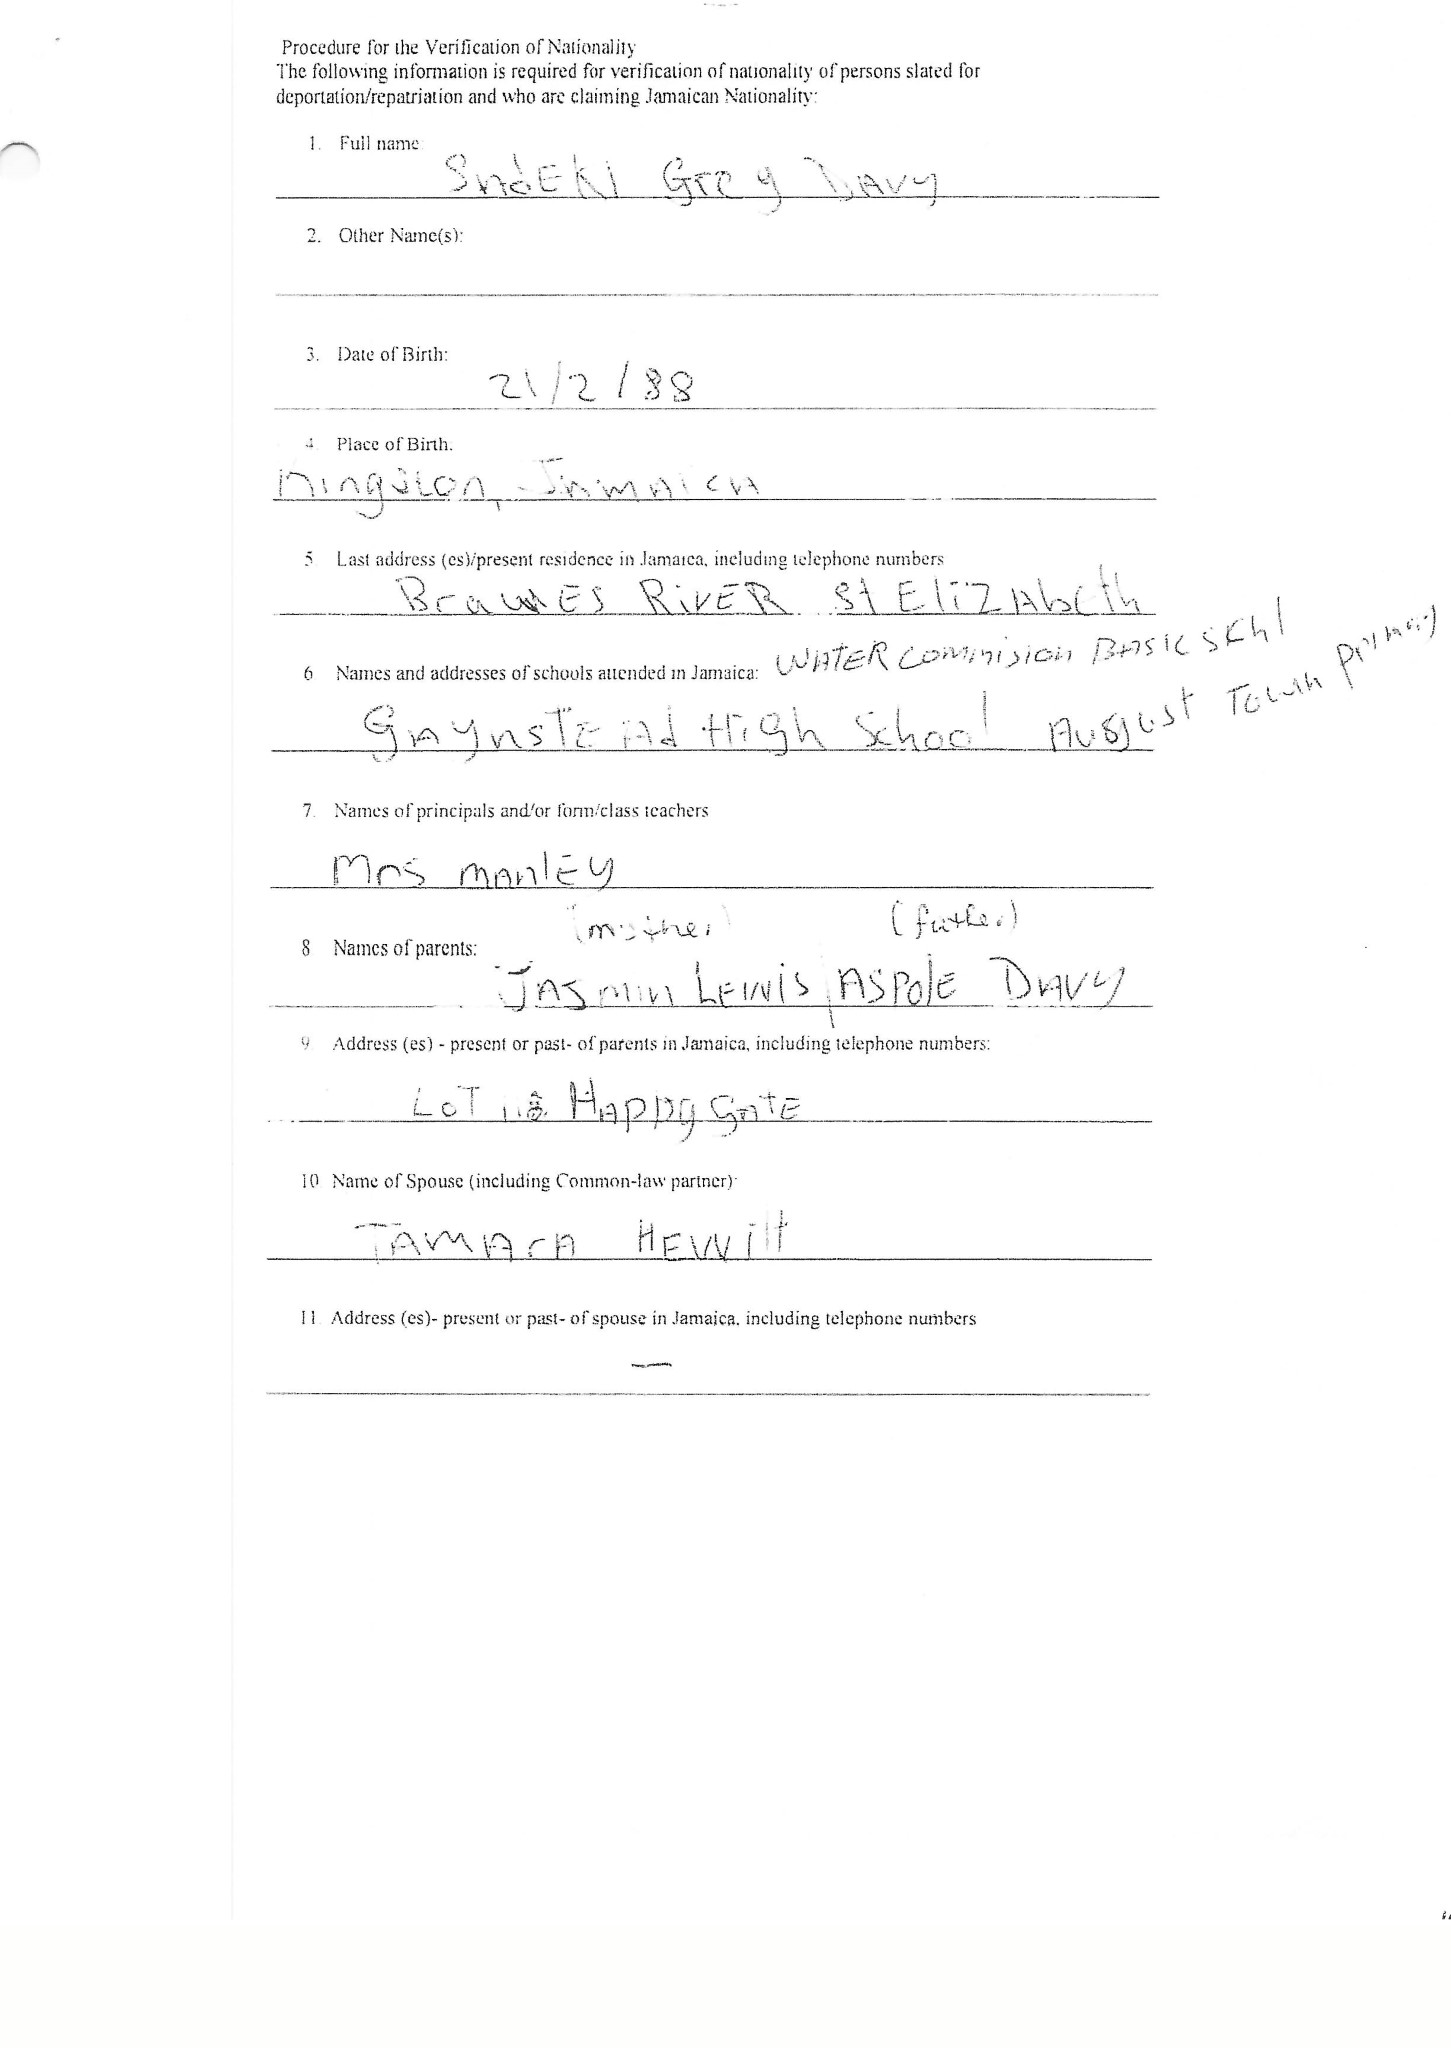 Procedure for the Verification of Nationality
The following information is required for verification of nationality of persons slated for
deportation/repatriation and who are claiming Jamaican Nationality:
1. Full name
Greg Davy
2. Other Name(s):
3. Date of Birth:
21/2/88
4 Place of Birth:
Kingston, Jamaica
5 Last address (es)/present residence in Jamaica, including telephone numbers
RiVER St ElizAbeth
6 Names and addresses of schools attended in Jamaica: WATER Commision BASIC SKhl
GAynsTEAd High School August Town primary
7. Names of principals and/or form/class teachers
Mrs MAnlEy
(mother) (father)
8 Names of parents:
JASmin LEWiS, ASPolE DAVy
9 Address (es) - present or past- of parents in Jamaica, including telephone numbers:
LoT HAppy GATE
10 Name of Spouse (including Common-law partner):
TAMARA HEWitt
11. Address (es)- present or past- of spouse in Jamaica, including telephone numbers
—